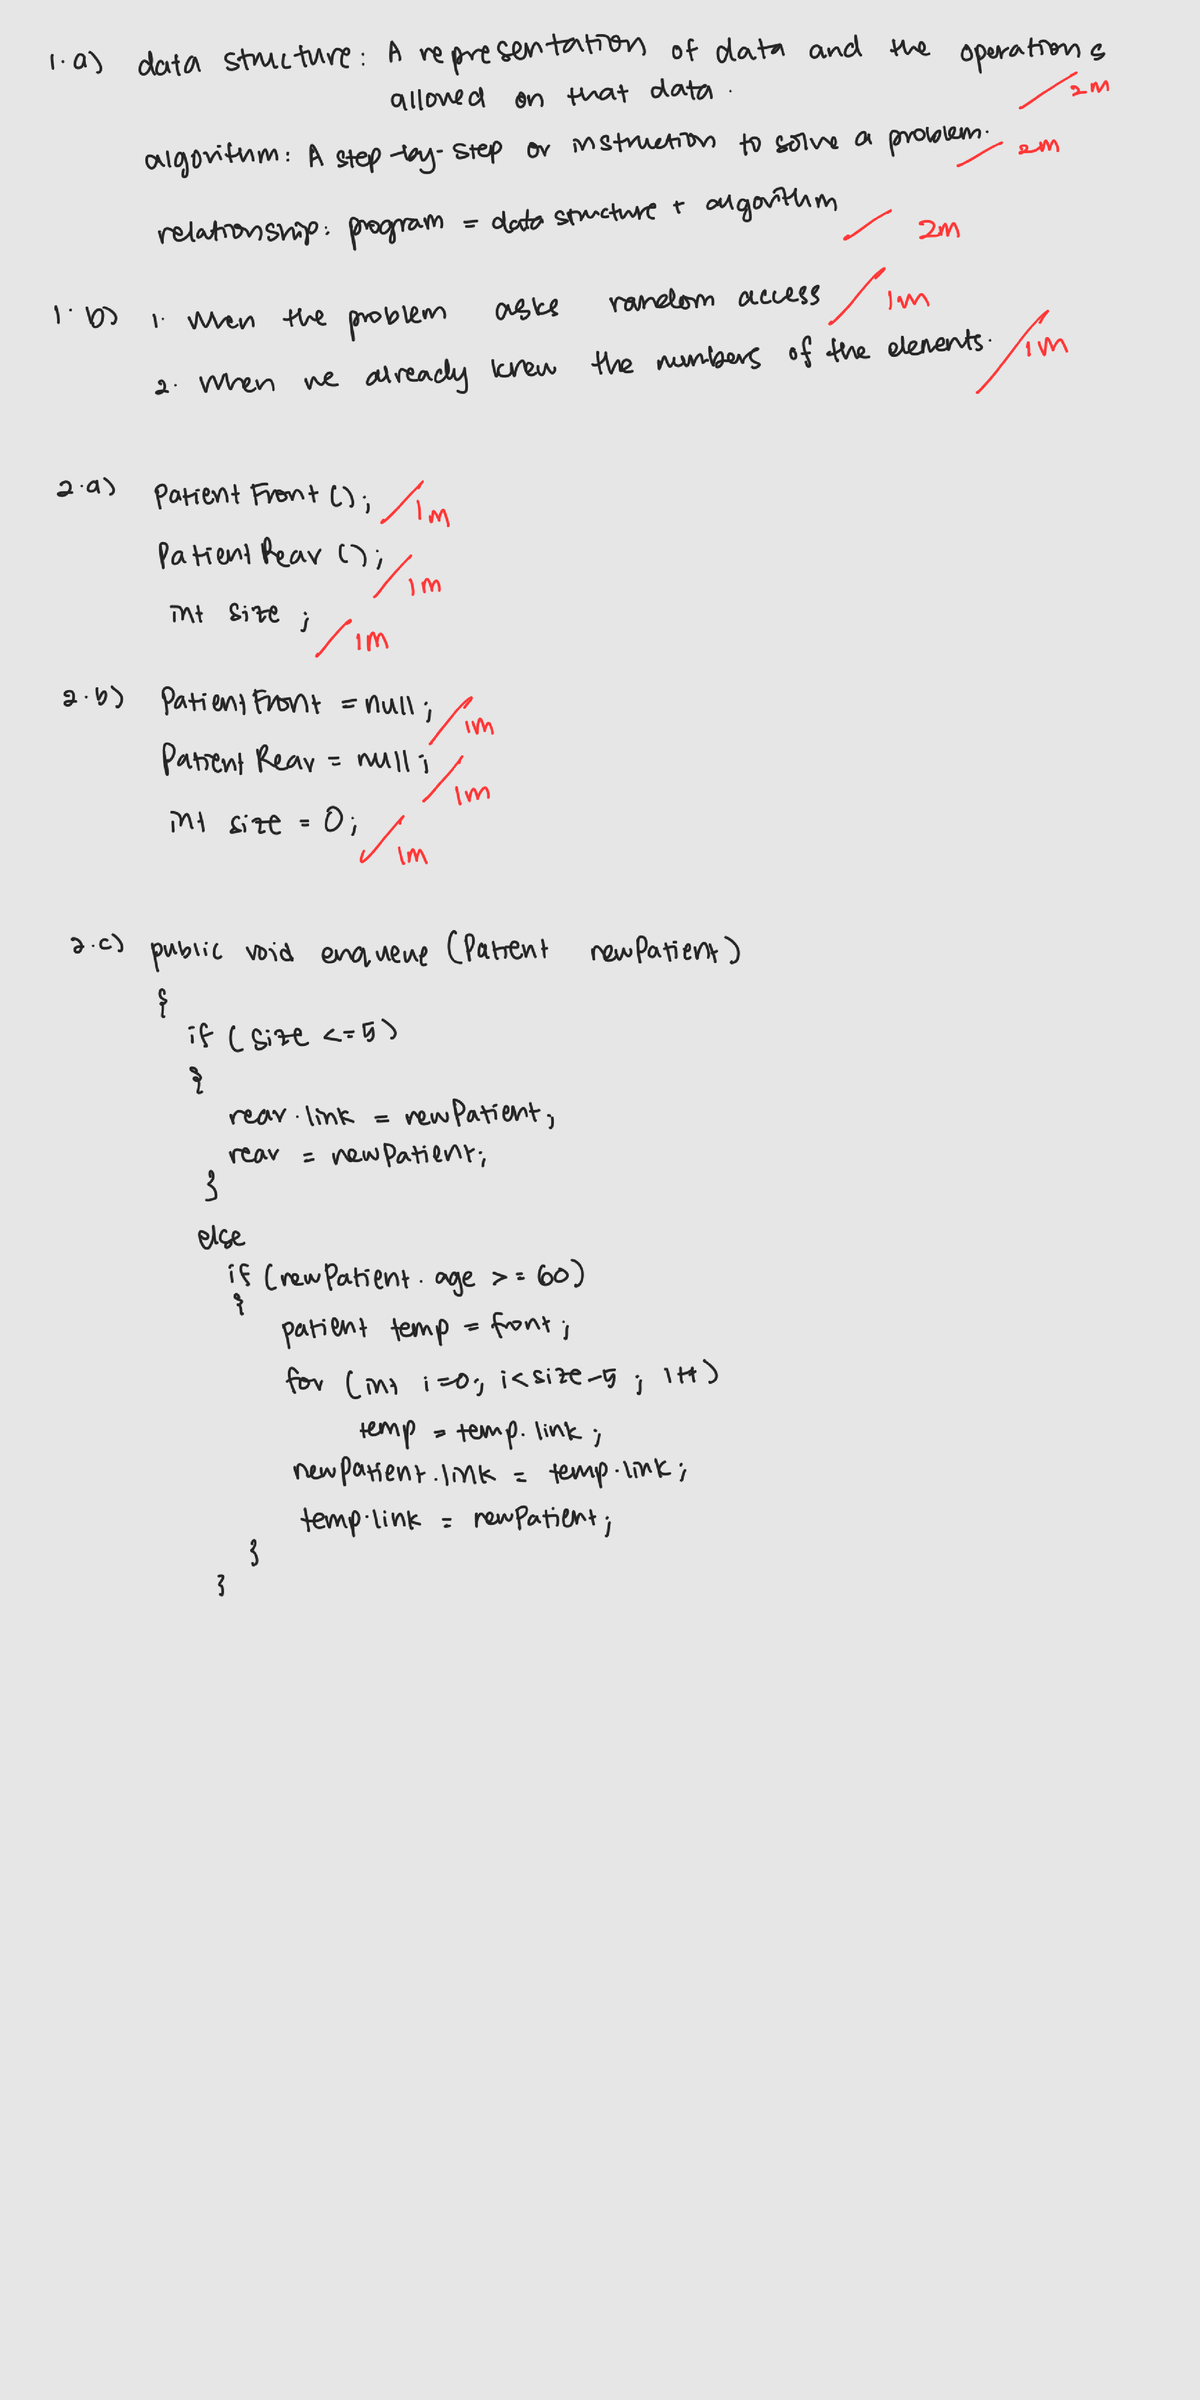 1.a) data structure: A representation of data and the operations
allowed on that data.
2m
algorithm: A step-by-step or instruction to solve a problem.
2m
relationship: program = data structure + algorithm
2m
1.b) 1. When the problem asks random access
1m
2. When we already knew the numbers of the elements.
1m
2.a) Patient Front ();
1m
Patient Rear ();
1m
int size ;
1m
2.b) Patient Front = null;
1m
Patient Rear = null;
1m
int size = 0;
1m
2.c) public void enqueue (Patient newPatient)
{
if (size <=5)
{
rear.link = newPatient;
rear = newPatient;
}
else
if (newPatient.age >= 60)
{
patient temp = front;
for (int i=0; i<size-5 ; i++)
temp = temp.link;
newPatient.link = temp.link;
temp.link = newPatient;
}
}